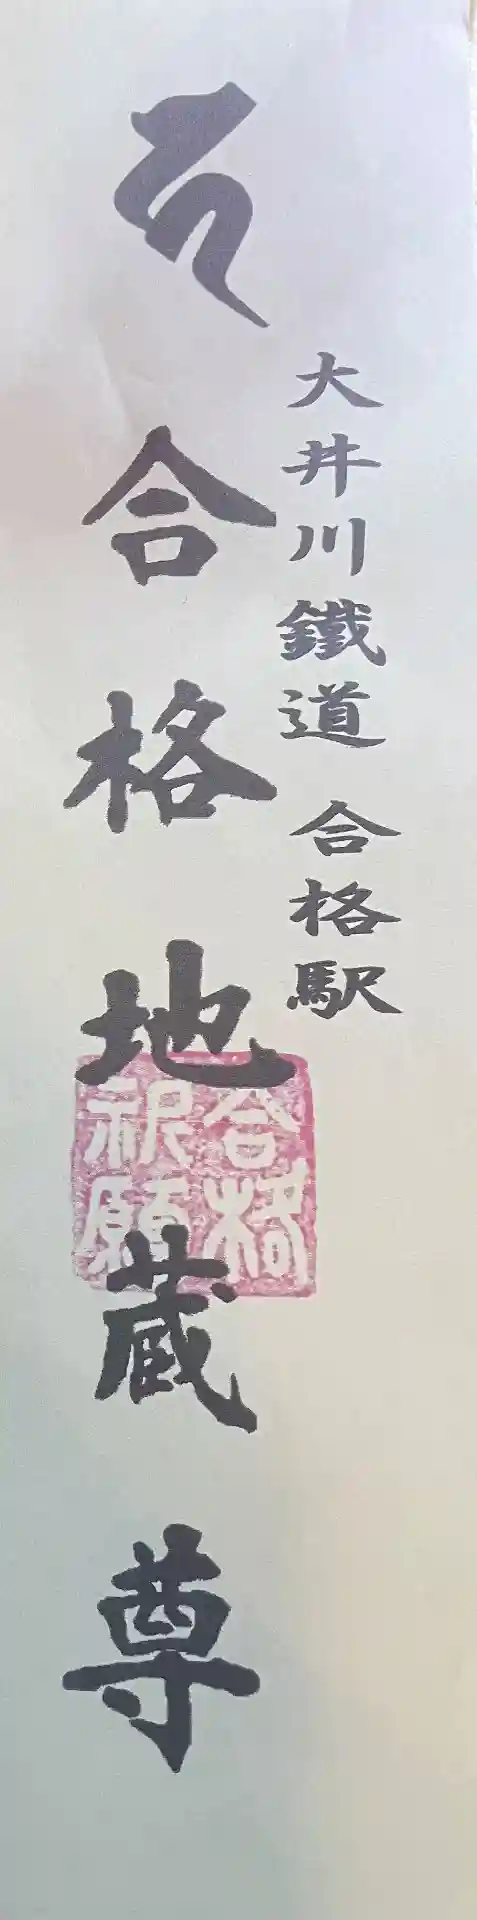 大井川鐵道 合格駅
𑖮 合格地蔵尊
合格
祈願